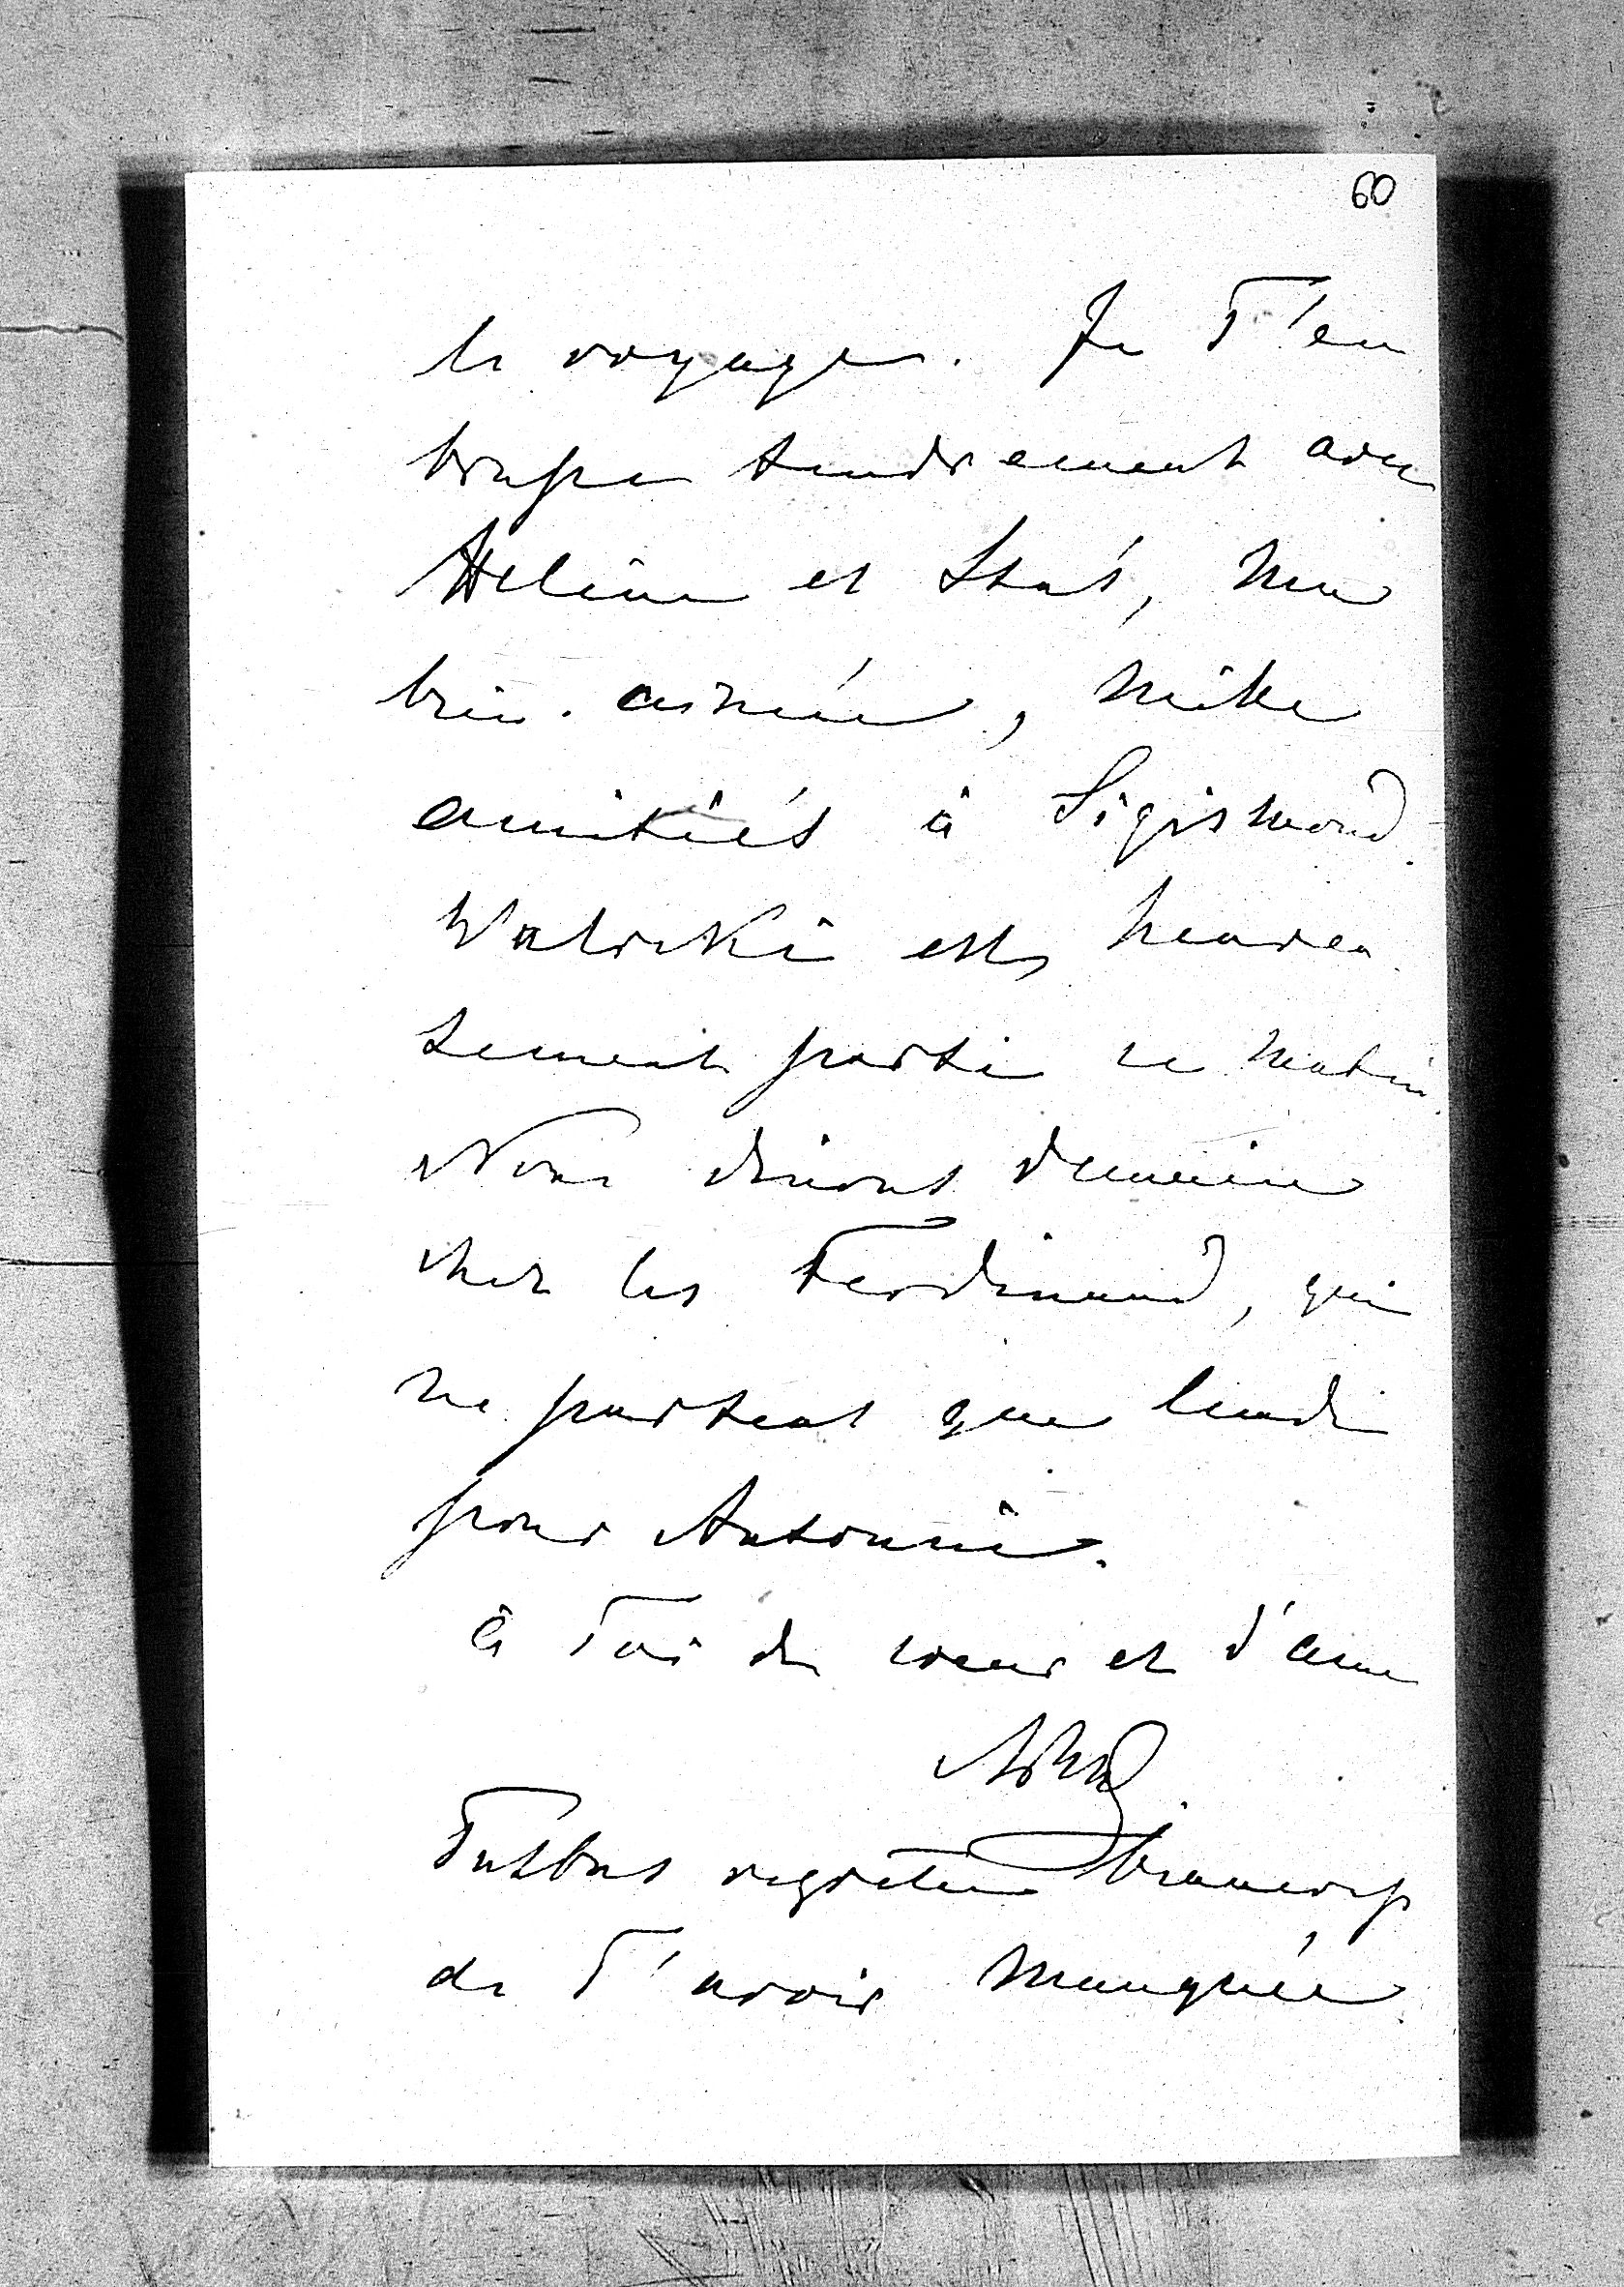 60
le voyage. Je T'em
brasse tendrement avec
Hélène et Staś, ma
bien-aimée, mille
amitiés à Sigismond.
Walicki est heureu
sement parti ce matin.
Nous dinons demain
chez les Ferdinand, qui
ne partent que lundi
pour Antonin.
à Toi de coeur et d'ame
Putbus regrette beaucoup
de T'avoir manquée.